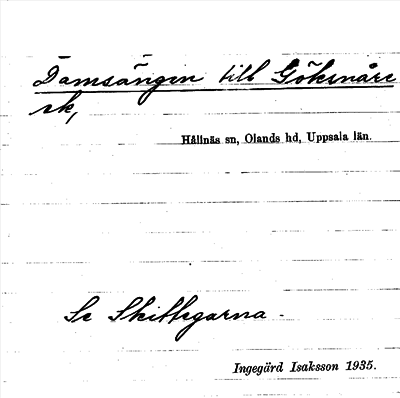 Damsängen till Göksnåre
sk,
Hållnäs sn, Olands hd, Uppsala län.
Se Skittegarna -
Ingegärd Isaksson 1935.